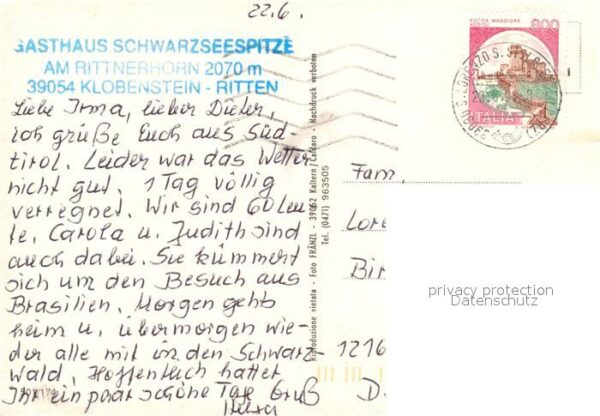 22.6.
GASTHAUS SCHWARZSEESPITZE
AM RITTNERHORN 2070 m
39054 KLOBENSTEIN - RITTEN
Liebe Irma, lieber Dieter,
ich grüße Euch aus Süd-
tirol. Leider war das Wetter
nicht gut. 1 Tag völlig
verregnet. Wir sind 60 Leu-
te, Carola u. Judith sind
auch dabei. Sie kümmert
sich um den Besuch aus
Brasilien. Morgen gehts
heim u. übermorgen wie-
der alle mit in den Schwarz-
wald. Hoffentlich hattet
Ihr ein paar schöne Tage Gruß
Riproduzione vietata - Foto FRÄNZL - 39052 Kaltern/Caldaro - Nachdruck verboten
Tel. (0471) 963505
ROCCA MAGGIORE
ASSISI
800
ITALIA
Fam.
Lore
Bir
1216
D.
privacy protection
Datenschutz